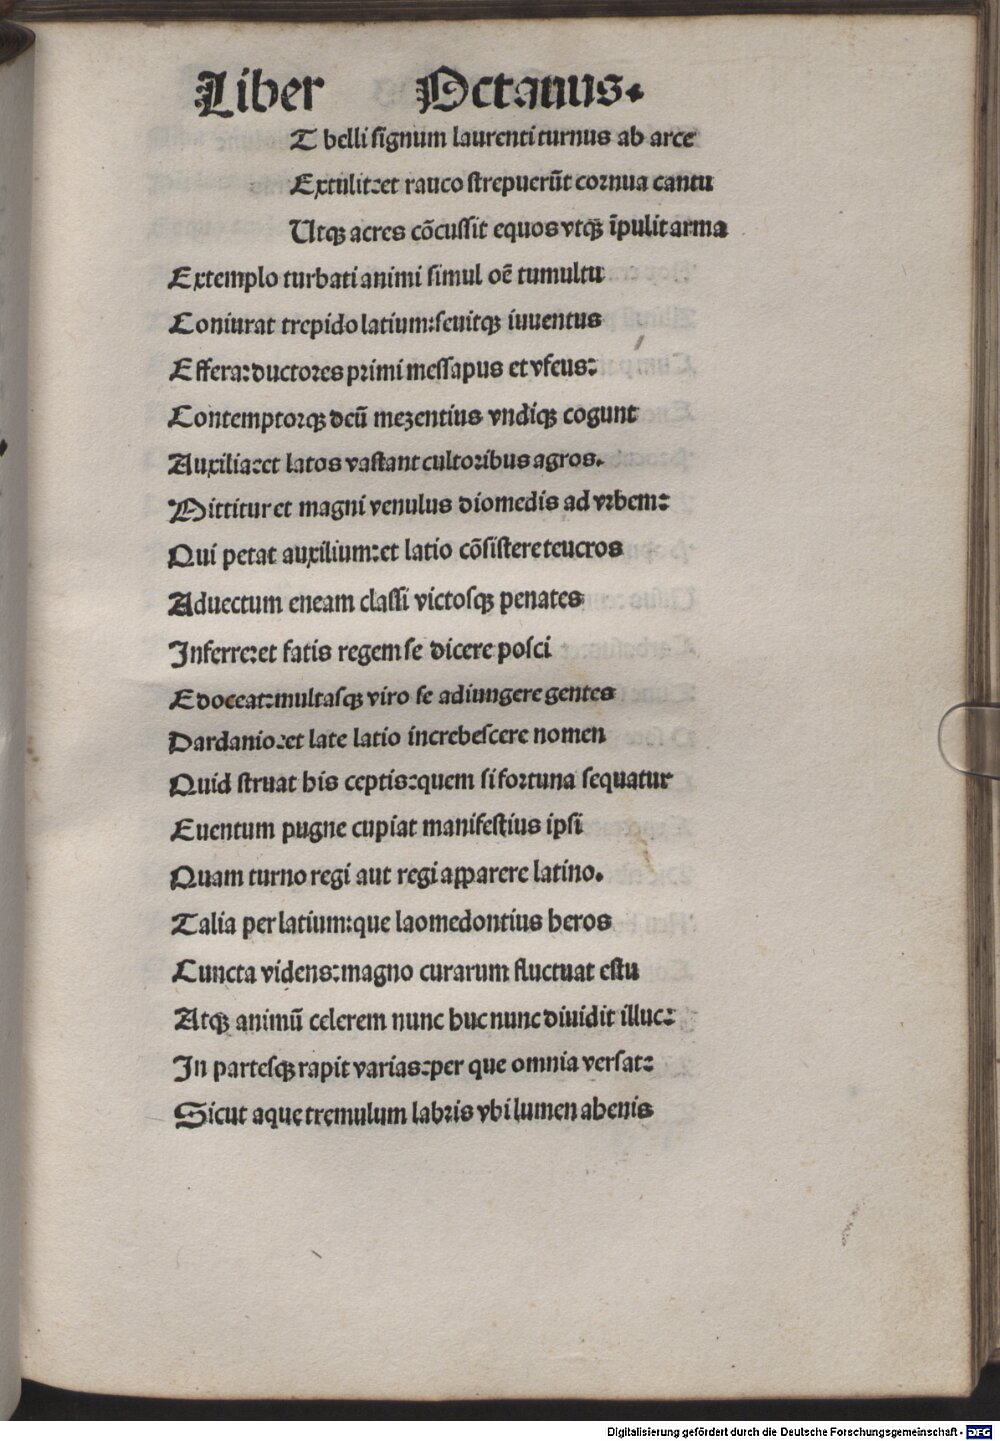 Liber Octauus.
T belli signum laurenti turnus ab arce
Extulit:et rauco strepuerūt cornua cantu
Utqꝫ acres cōcussit equos vtqꝫ īpulit arma
Extemplo turbati animi simul oē tumultu
Coniurat trepido latium:seuitqꝫ iuuentus
Effera:ductores primi messapus et vfeus:
Contemptorqꝫ deū mezentius vndiqꝫ cogunt
Auxilia:et latos vastant cultoribus agros.
Mittitur et magni venulus diomedis ad vrbem:
Qui petat auxilium:et latio cōsistere teucros
Aduectum eneam classi victosqꝫ penates
Inferre:et fatis regem se dicere posci
Edoceat:multasqꝫ viro se adiungere gentes
Dardanio:et late latio increbescere nomen
Quid struat his ceptis:quem si fortuna sequatur
Euentum pugne cupiat manifestius ipsi
Quam turno regi aut regi apparere latino.
Talia per latium:que laomedontius heros
Cuncta videns:magno curarum fluctuat estu
Atqꝫ animū celerem nunc huc nunc diuidit illuc:
In partesqꝫ rapit varias:per que omnia versat:
Sicut aque tremulum labris vbi lumen ahenis
Digitalisierung gefördert durch die Deutsche Forschungsgemeinschaft - DFG